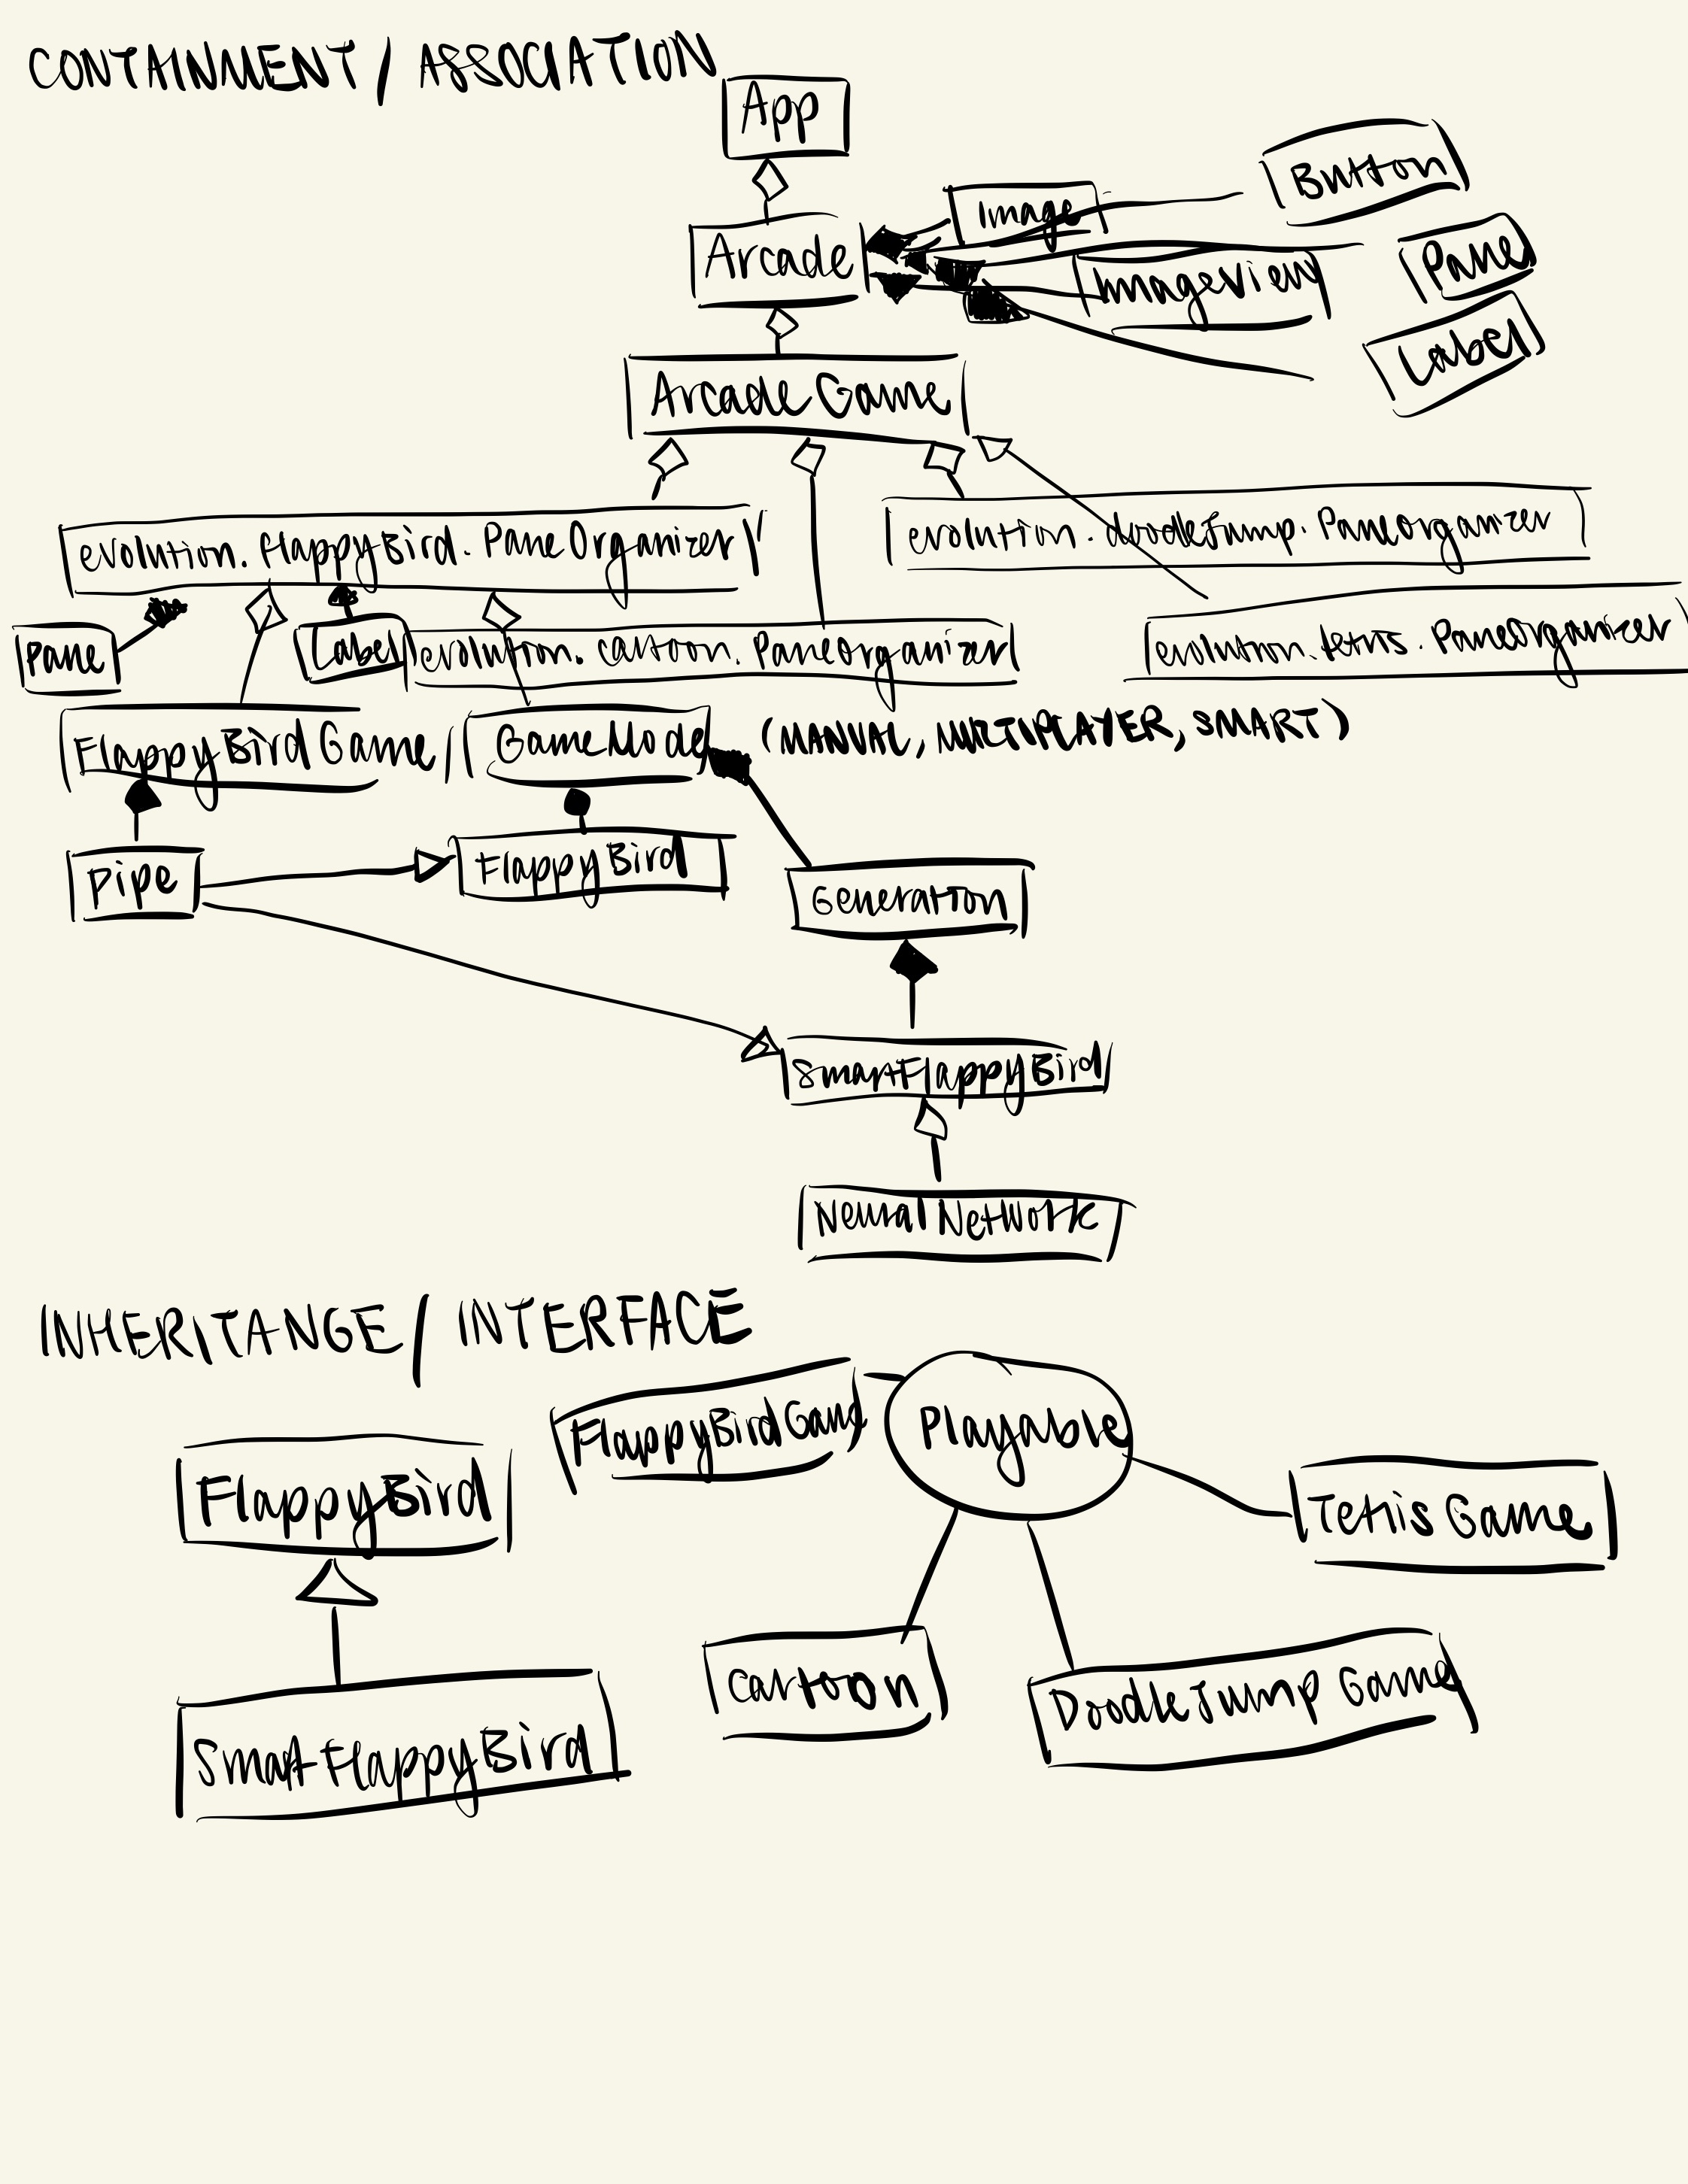 CONTAINMENT / ASSOCIATION
App
Button
Image
Arcade
Pane
ImageView
Label
ArcadeGame
evolution.flappyBird.PaneOrganizer
evolution.doodleJump.PaneOrganizer
Pane
Label
evolution.cartoon.PaneOrganizer
evolution.tetris.PaneOrganizer
FlappyBirdGame
GameMode (MANUAL, MULTIPLAYER, SMART)
Pipe
FlappyBird
Generation
SmartFlappyBird
Neural Network
INHERITANCE / INTERFACE
FlappyBirdGame
Playable
FlappyBird
Tetris Game
Cartoon
DoodleJump Game
SmartFlappyBird